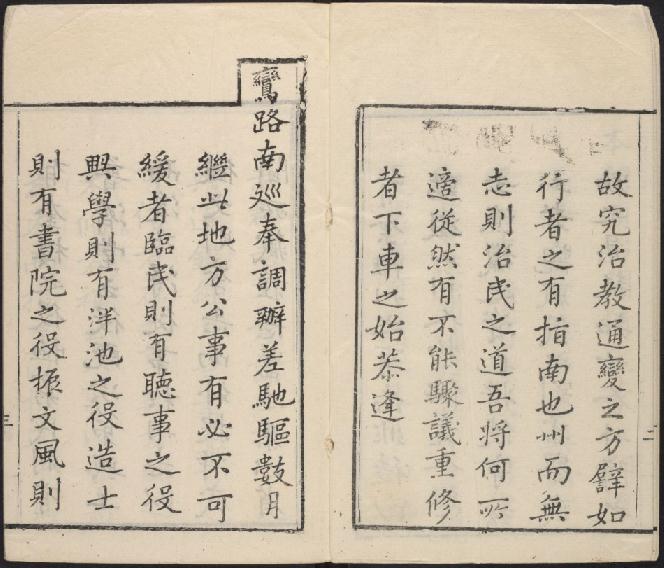 故究治教通變之方譬如
行者之有指南也州而無
志則治民之道吾將何所
適從然有不能驟議重修
者下車之始恭逢
鸞路南巡奉調辦差馳驅數月
繼此地方公事有必不可
緩者臨民則有聽事之役
興學則有泮池之役造士
則有書院之役振文風則
二
三